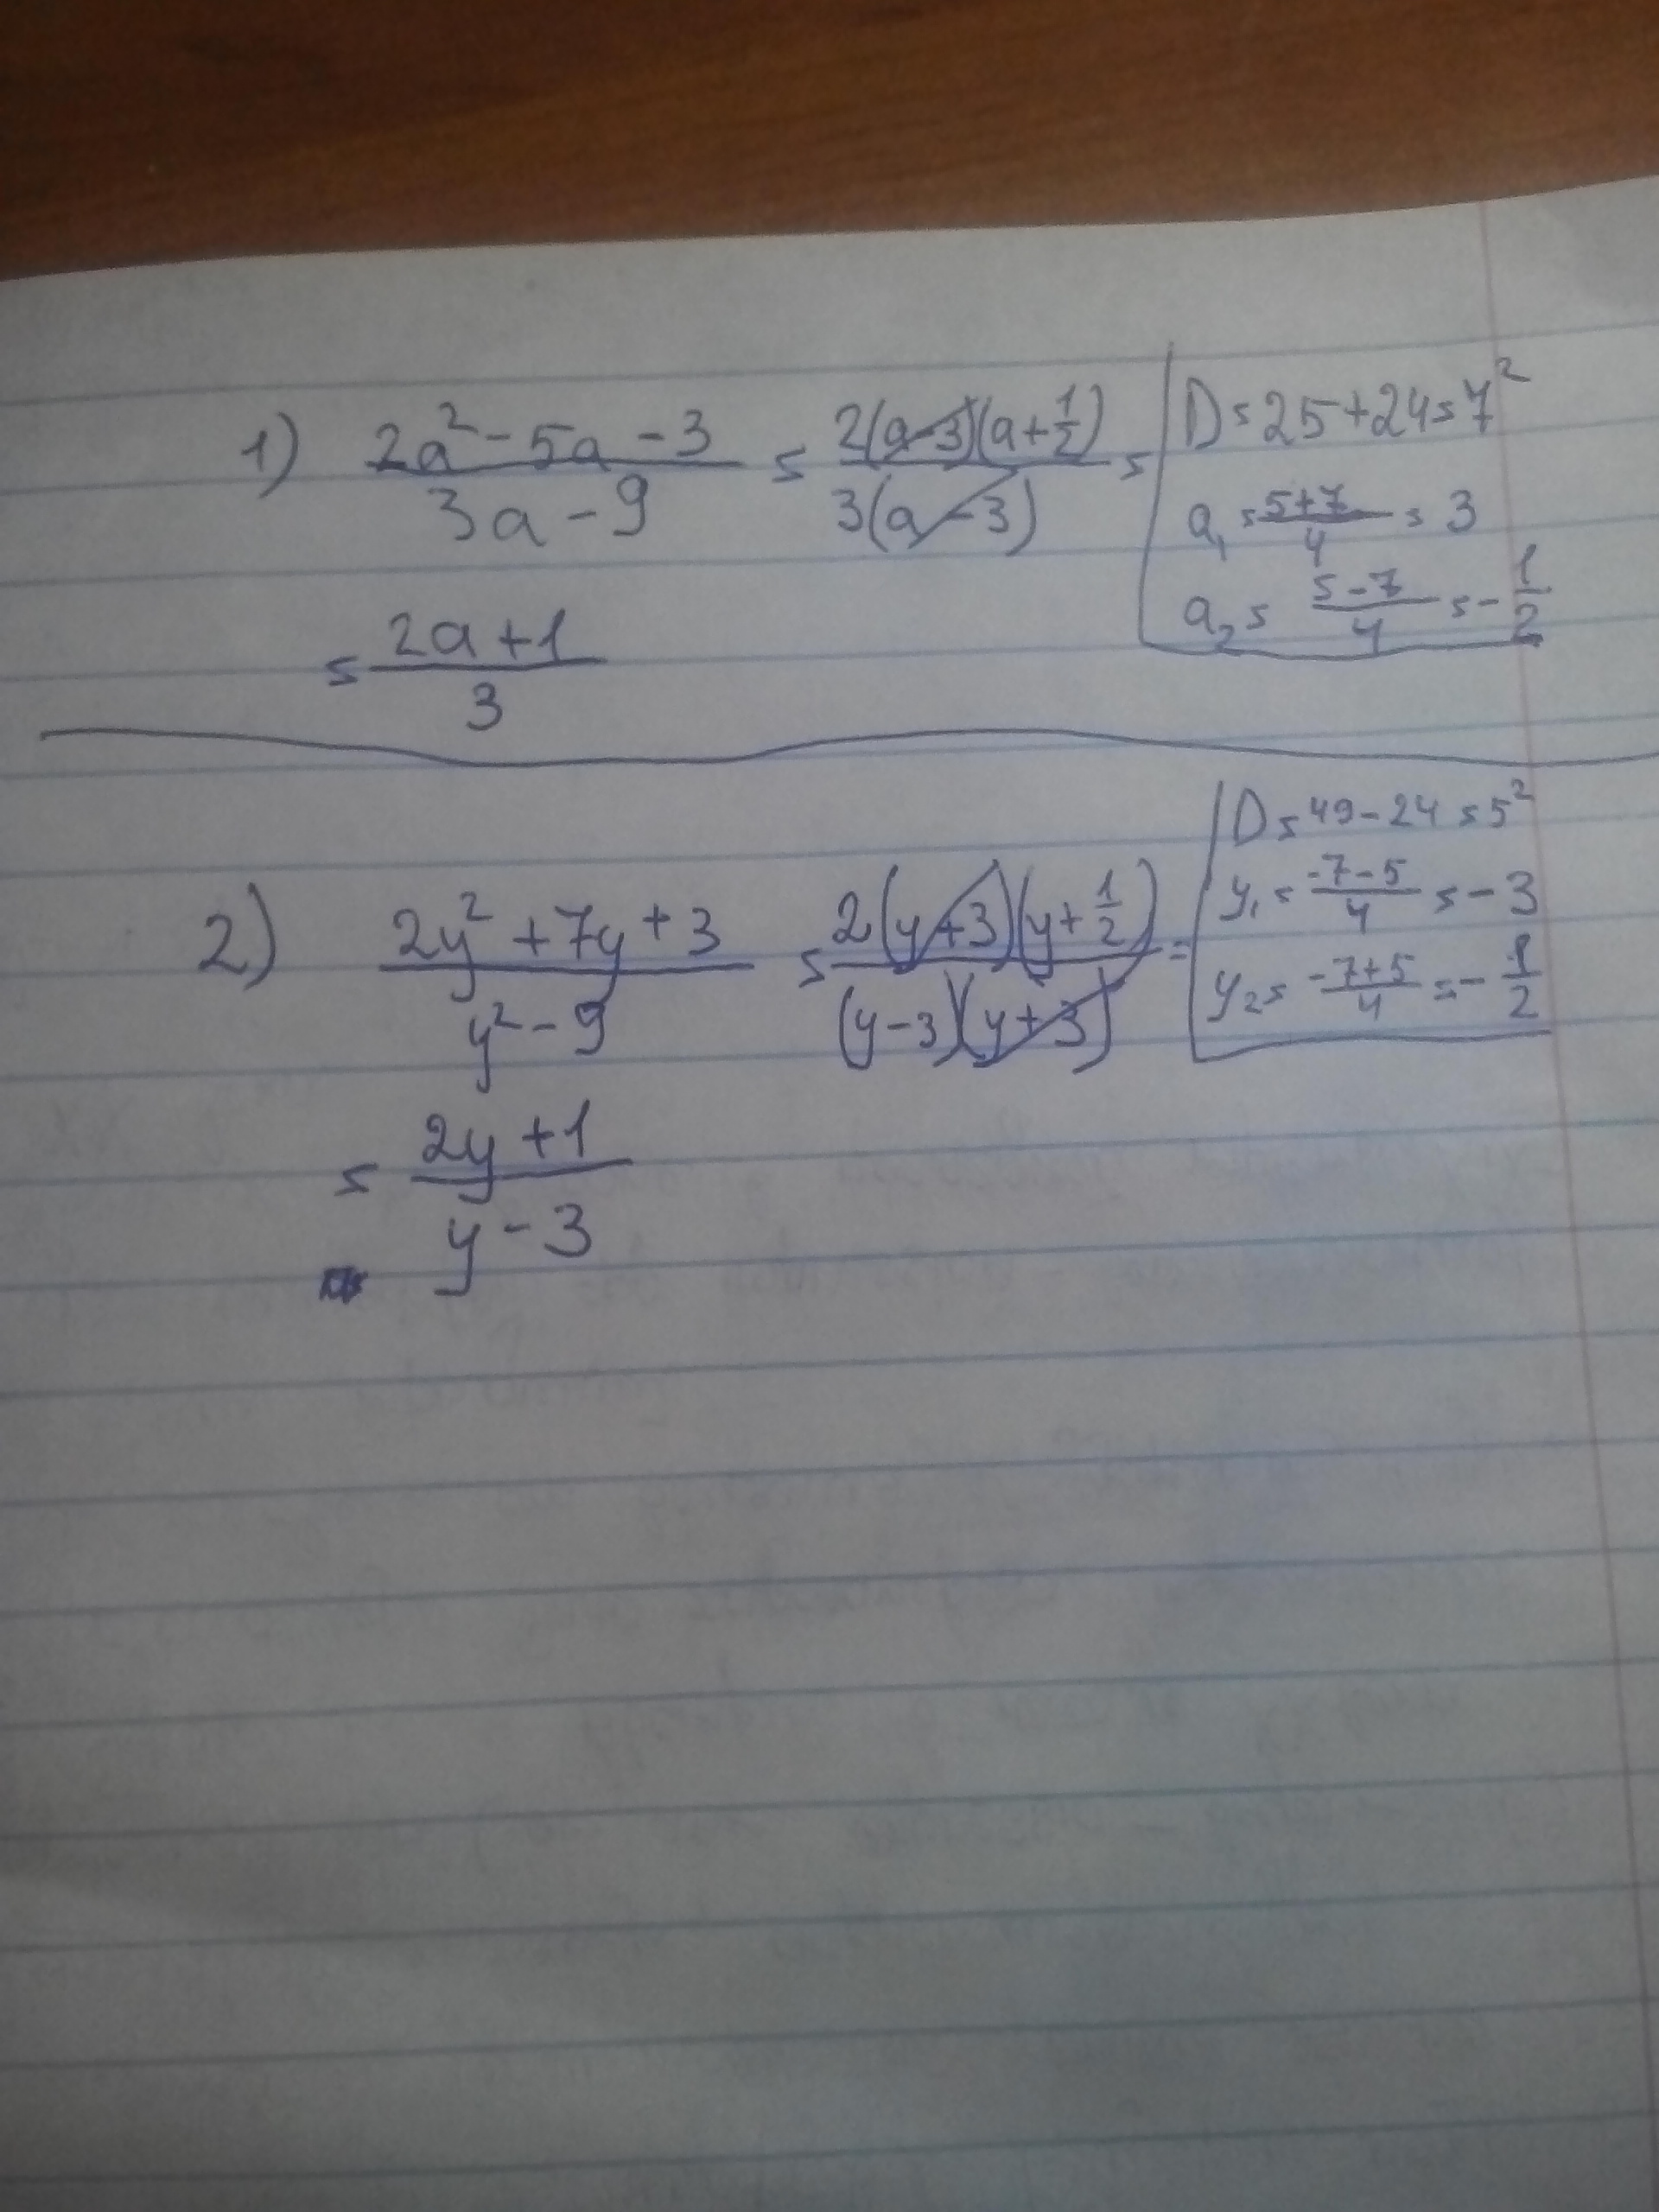 1) (2a² - 5a - 3)/(3a - 9) = 2(a-3)(a+1/2)/3(a-3) =
= (2a+1)/3
D = 25+24 = 7²
a₁ = (5+7)/4 = 3
a₂ = (5-7)/4 = -1/2
2) (2y² + 7y + 3)/(y² - 9) = 2(y+3)(y+1/2)/(y-3)(y+3) =
= (2y+1)/(y-3)
D = 49 - 24 = 5²
y₁ = (-7-5)/4 = -3
y₂ = (-7+5)/4 = -1/2